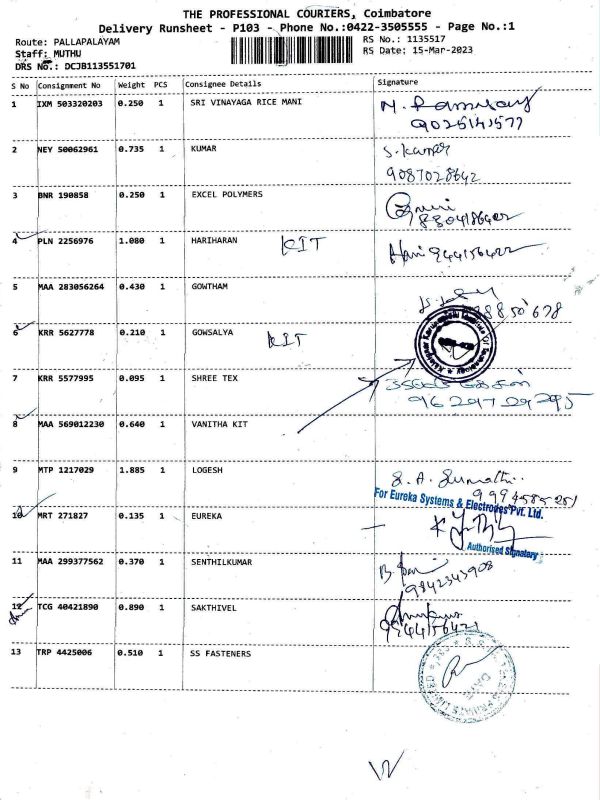 THE PROFESSIONAL COURIERS, Coimbatore
Delivery Runsheet - P103 - Phone No.:0422-3505555 - Page No.:1
Route: PALLAPALAYAM
RS No.: 1135517
Staff: MUTHU
RS Date: 15-Mar-2023
DRS No.: DCJB113551701
S No Consignment No Weight PCS Consignee Details Signature
1 IXM 503320203 0.250 1 SRI VINAYAGA RICE MANI
2 NEY 50062961 0.735 1 KUMAR S. Kumar
9087028642
3 BNR 190858 0.250 1 EXCEL POLYMERS
4 PLN 2256976 1.080 1 HARIHARAN KIT Hari 9244156422
5 MAA 283056264 0.430 1 GOWTHAM
6 KRR 5627778 0.210 1 GOWSALYA KIT
7 KRR 5577995 0.095 1 SHREE TEX
8 MAA 569012230 0.640 1 VANITHA KIT
9 MTP 1217029 1.885 1 LOGESH
For Eureka Systems & Electrodes Pvt. Ltd.
10 MRT 271827 0.135 1 EUREKA
Authorised Signatory
11 MAA 299377562 0.370 1 SENTHILKUMAR
9842343908
12 TCG 40421890 0.890 1 SAKTHIVEL
9244156421
13 TRP 4425006 0.510 1 SS FASTENERS
DATE